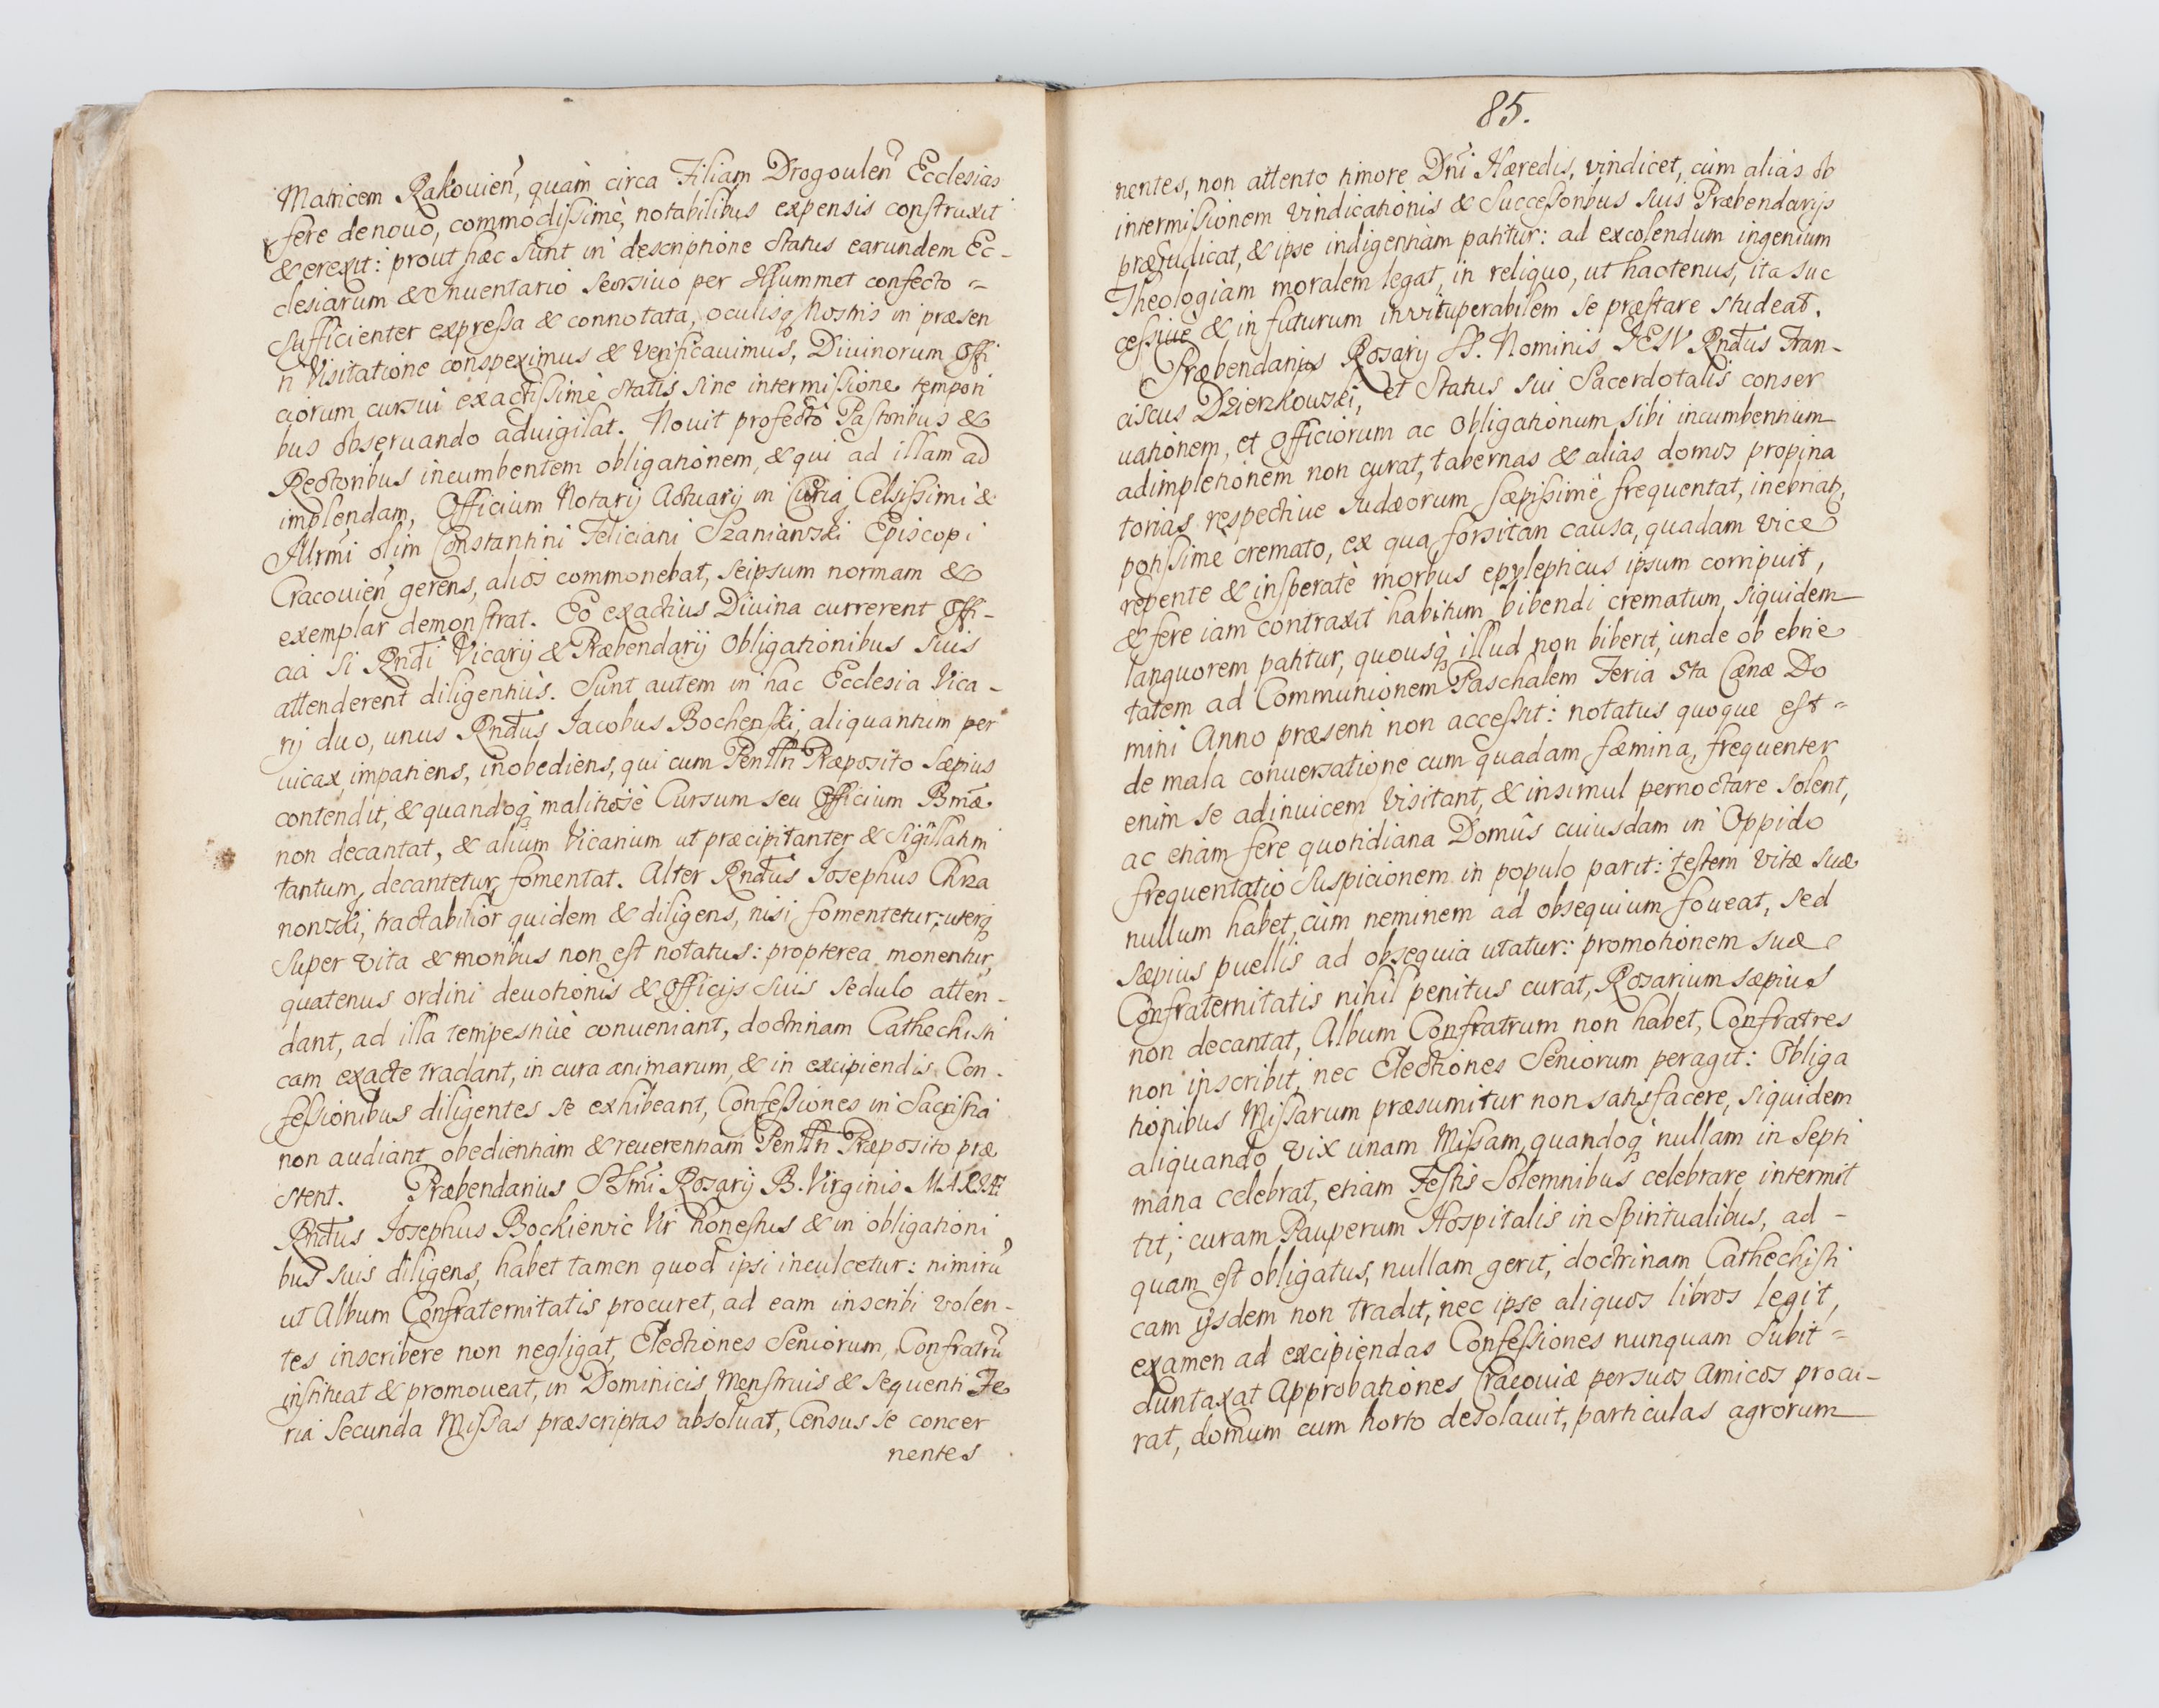 Matricem Rakouien̄, quàm circa Filiam Drogoulen̄ Ecclesias
fere denouo, commodissimè, notabilibus expensis construxit
& erexit: prout hæc sunt in descriptione Status earundem Ec-
clesiarum & Inuentario seorsiuo per Illummet confecto =
Sufficienter expressa & connotata, oculisq́ Nostris in præsen
ti Visitatione conspeximus & verificauimus, Diuinorum Offi
ciorum cursui exactissimè statis sine intermissione tempori
bus obseruando aduigilat. Nouit profectò Pastoribus &
Rectoribus incumbentem obligationem, & qui ad illam ad
implendam, Officium Notarij Actuarij in Curia Celsissimi &
Illrm̄i olim Constantini Feliciani Szaniawski Episcopi
Cracouien̄ gerens, alios commonebat, seipsum normam &
exemplar demonstrat. Eò exactius Diuina currerent Offi-
cia si Rnd̄i Vicarij & Præbendarij Obligationibus suis
attenderent diligentiùs. Sunt autem in hac Ecclesia Vica-
rij duo, unus Rnd̄us Jacobus Bochenski, aliquantum per
uicax, impatiens, inobediens, qui cum Perlln̄ Præposito sæpius
contendit, & quandoq́ malitiosè Cursum seu Officium Bmǣ
non decantat, & alium Vicarium ut præcipitanter & Sigillatim
tantum decantetur, fomentat. Alter Rnd̄us Josephus Chrza
nowski, tractabilior quidem & diligens, nisi fomentetur; uterq́
super vita & moribus non est notatus: propterea monentur,
quatenus ordini deuotionis & Officijs suis sedulo atten-
dant, ad illa tempestiuè conueniant, doctrinam Cathechisti
cam exacte tradant, in cura animarum, & in excipiendis Con-
fessionibus diligentes se exhibeant, Confessiones in Sacristia
non audiant, obedientiam & reuerentiam Perlln̄ Præposito præ
stent. Præbendarius SSm̄i Rosarij B. Virginis MARIÆ
Rnd̄us Josephus Bockiewic Vir honestus & in obligationi
bus suis diligens, habet tamen quod ipsi inculcetur: nimirū
ut Album Confraternitatis procuret, ad eam inscribi volen-
tes inscribere non negligat, Electiones Seniorum, Confratrū
instituat & promoueat, in Dominicis Menstruis & sequenti Fe
ria Secunda Missas præscriptas absoluat, Census se concer
nentes
85.
nentes, non attento timore Dn̄i Hæredis, vindicet, cùm aliàs ob
intermissionem vindicationis & Successoribus suis Præbendarijs
præiudicat, & ipse indigentiam patitur: ad excolendum ingenium
Theologiam moralem legat, in reliquo, ut hactenus, ita suc
cessiuè & in futurum invituperabilem se præstare studeat.
Præbendarius Rosarij SS. Nominis JESV Rnd̄us Fran-
ciscus Dzierzkowski, et Status sui Sacerdotalis conser
uationem, et Officiorum ac Obligationum sibi incumbentium
adimpletionem non curat, tabernas & alias domos propina
torias respectiue Judæorum sæpissimè frequentat, inebriat,
potissimè cremato, ex qua forsitan causa, quadam vice
repente & insperatè morbus epylepticus ipsum corripuit,
& fere iam contraxit habitum bibendi crematum, siquidem
languorem patitur, quousq́ illud non biberit, unde ob ebrie
tatem ad Communionem Paschalem Feria 5ta Cænæ Do
mini Anno præsenti non accessit: notatus quoque est =
de mala conuersatione cum quadam fæmina, frequenter
enim se adinuicem Visitant, & insimul pernoctare solent,
ac etiam fere quotidiana Domûs cuiusdam in Oppido
frequentatio suspicionem in populo parit: testem vitæ suæ
nullum habet, cùm neminem ad obsequium foueat, sed
sæpius puellis ad obsequia utatur: promotionem suæ
Confraternitatis nihil penitus curat, Rosarium sæpius
non decantat, Album Confratrum non habet, Confratres
non inscribit, nec Electiones Seniorum peragit: Obliga
tionibus Missarum præsumitur non satisfacere, siquidem
aliquando vix unam Missam, quandoq́ nullam in Septi
mana celebrat, etiam Festis Solemnibus celebrare intermit
tit, curam Pauperum Hospitalis in Spiritualibus, ad -
quam est obligatus, nullam gerit, doctrinam Cathechisti
cam ijsdem non tradit, nec ipse aliquos libros legit,
examen ad excipiendas Confessiones nunquam subit =
duntaxat Approbationes Cracouiæ per suos Amicos procu-
rat, domum cum horto desolauit, particulas agrorum